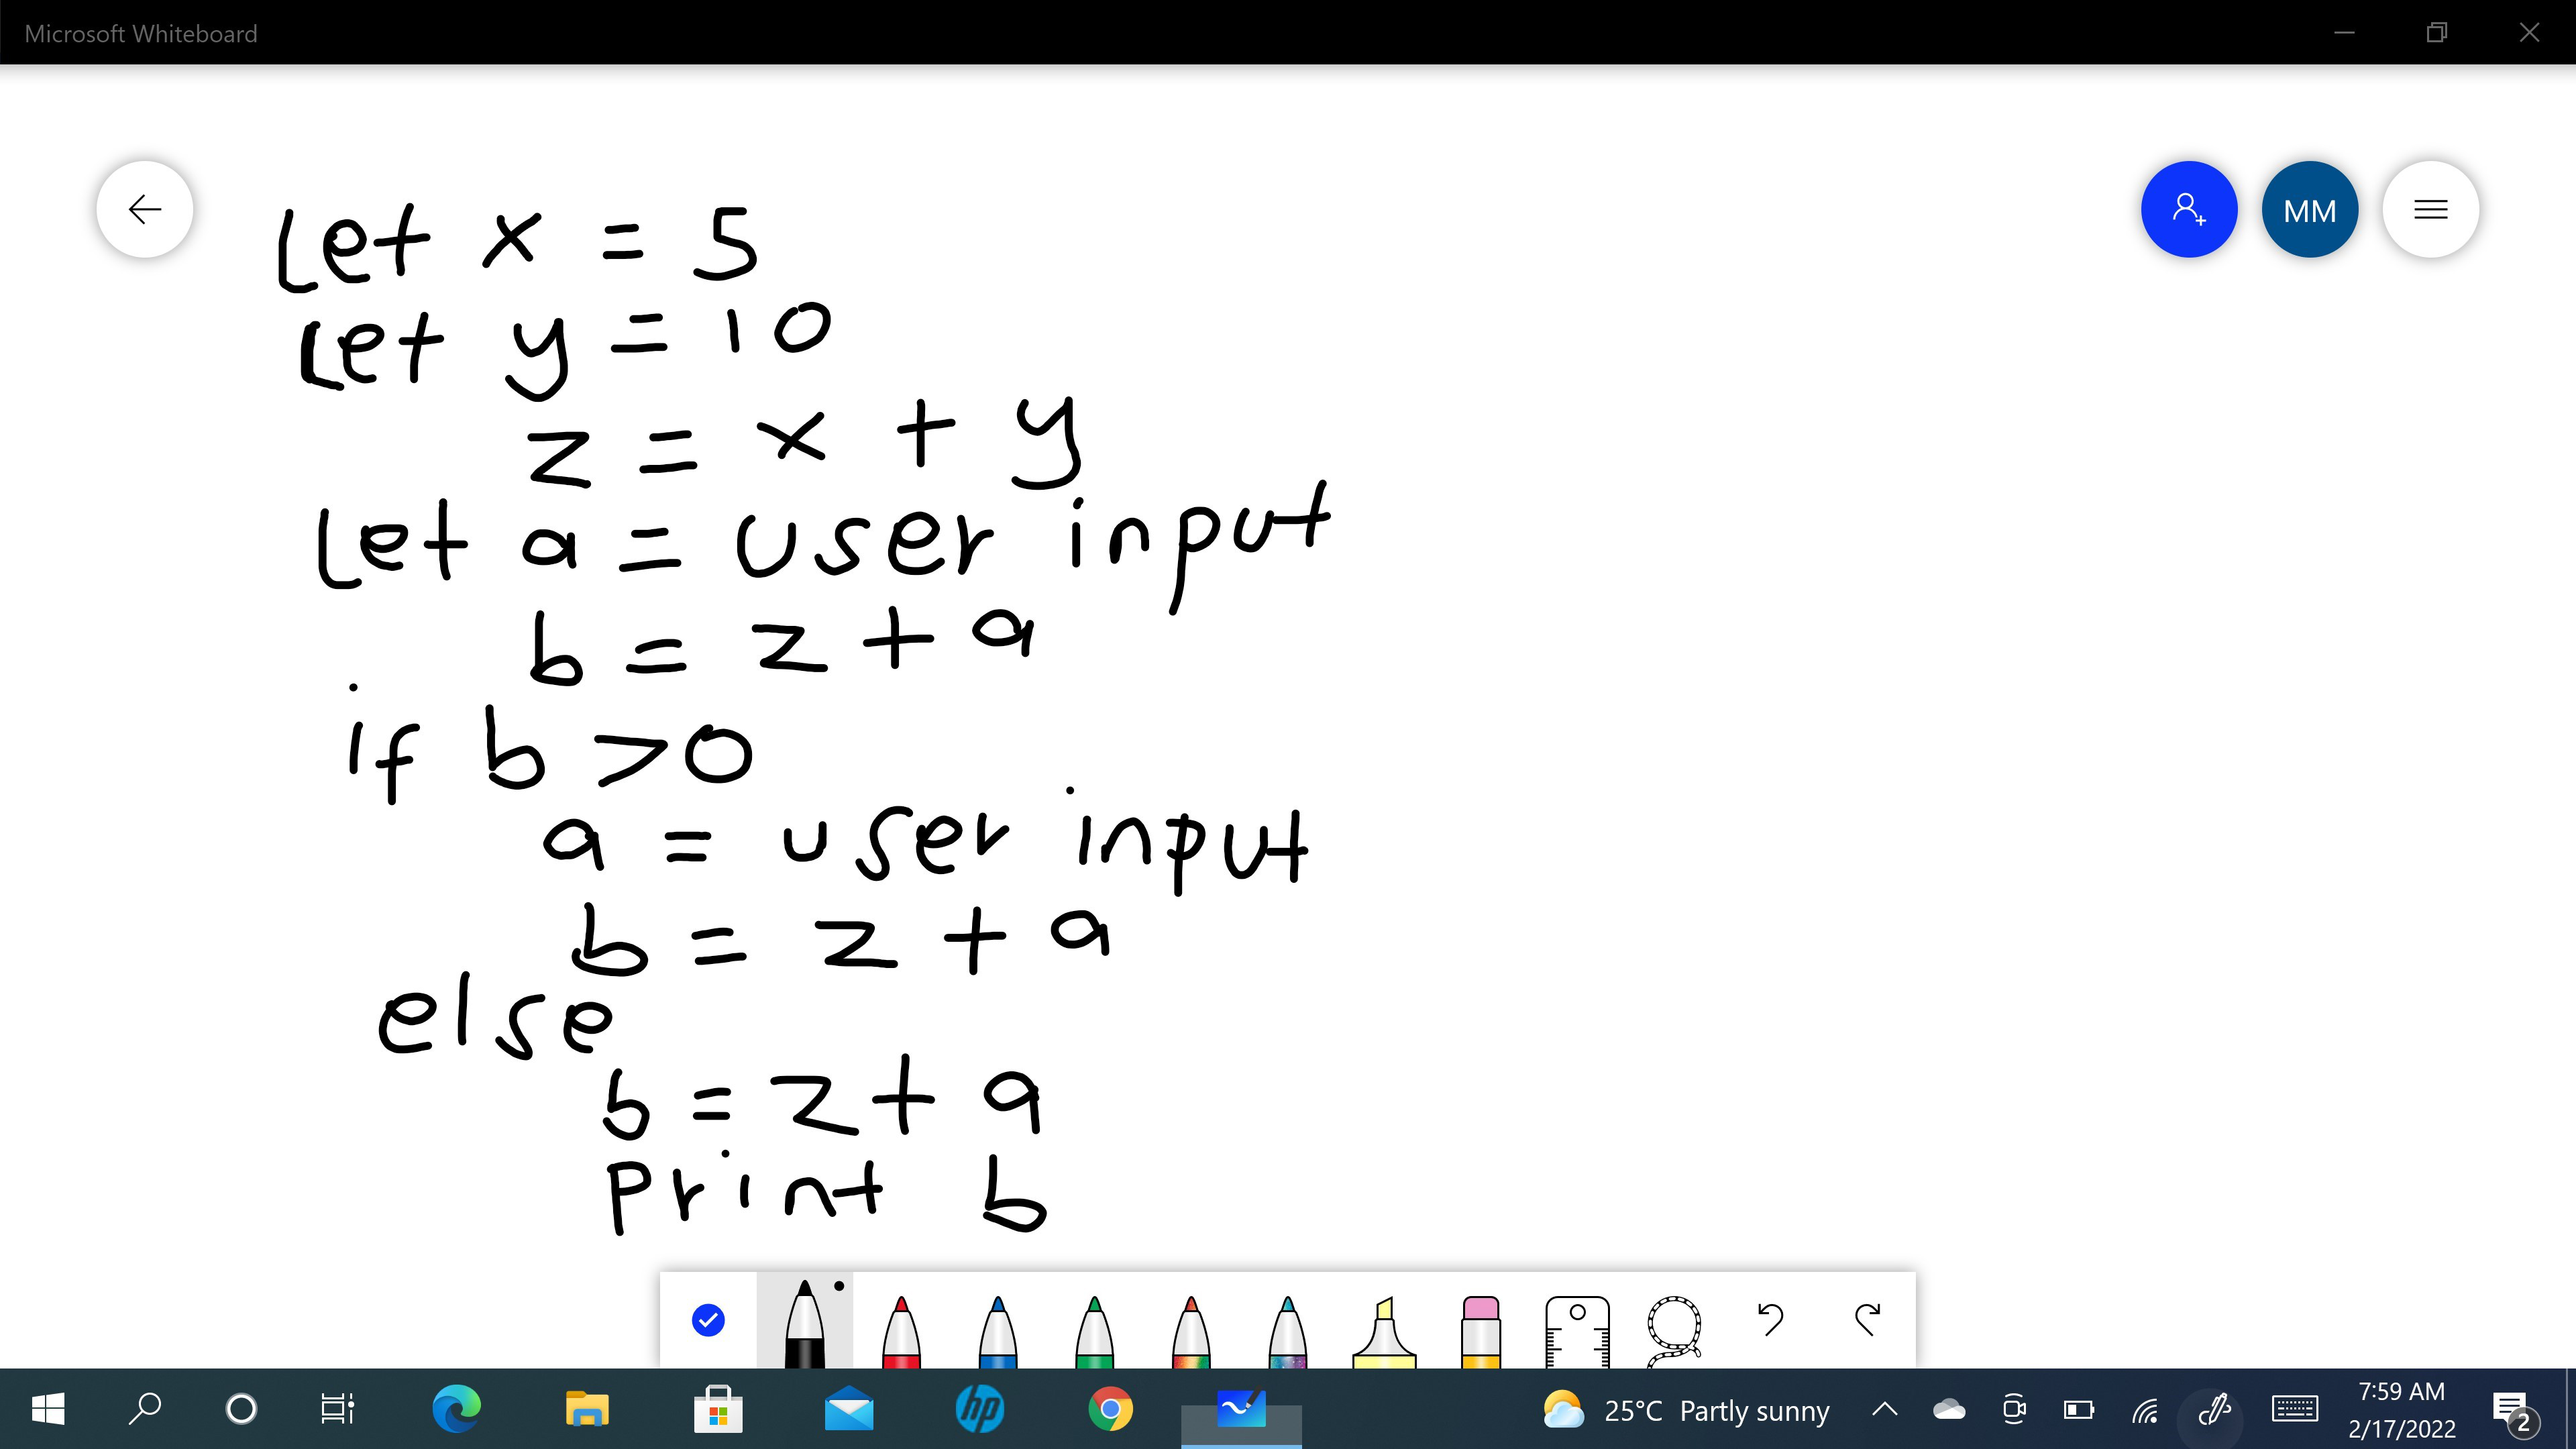 Microsoft Whiteboard
MM
Let x = 5
Let y = 10
z = x + y
Let a = user input
b = z + a
if b > 0
a = user input
b = z + a
else
b = z + a
print b
hp
25°C Partly sunny
7:59 AM
2/17/2022
2